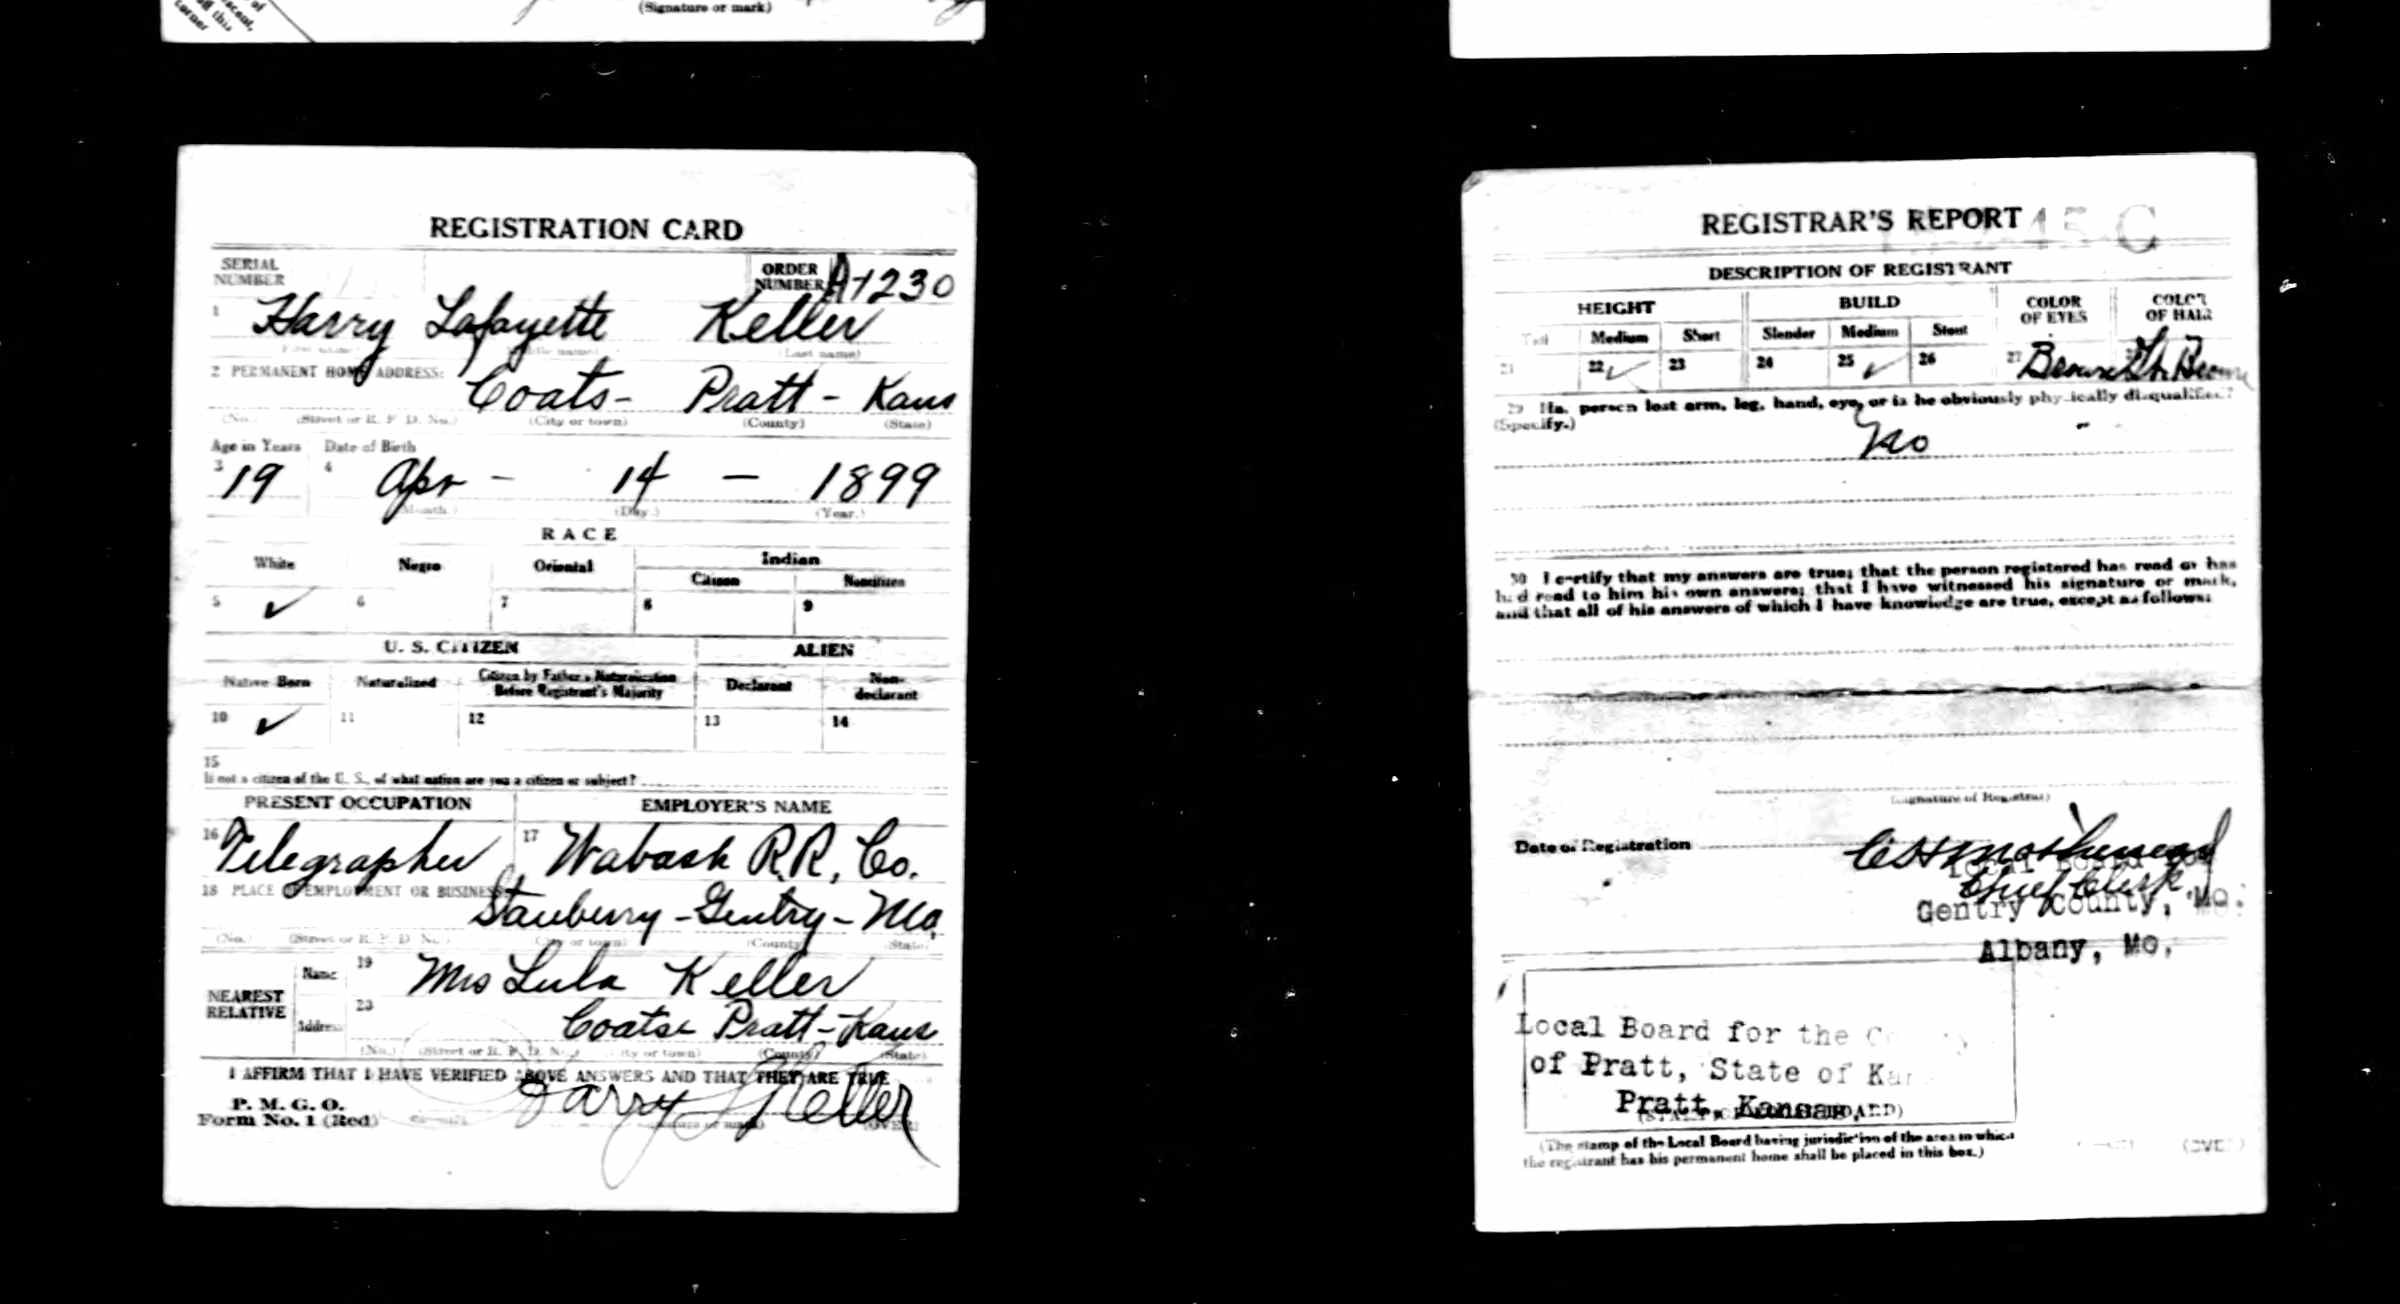 (Signature or mark)
corner
REGISTRATION CARD
SERIAL NUMBER
ORDER NUMBER A1230
1 Harry Lafayette Keller
(Last name)
2 PERMANENT HOME ADDRESS: Coats- Pratt- Kans
(No.) (Street or R. F. D. No.) (City or town) (County) (State)
Age in Years Date of Birth
3 19 4 Apr - 14 - 1899
(Month.) (Day.) (Year.)
RACE
White Negro Oriental Indian
Citizen Noncitizen
5 ✓ 6 7 8 9
U. S. CITIZEN ALIEN
Native Born Naturalized Citizen by Father's Naturalization Before Registrant's Majority Declarant Non-declarant
10 ✓ 11 12 13 14
15
If not a citizen of the U. S., of what nation are you a citizen or subject?
PRESENT OCCUPATION EMPLOYER'S NAME
16 Telegrapher 17 Wabash R.R, Co.
18 PLACE OF EMPLOYMENT OR BUSINESS:
Stanberry-Gentry-Mo.
(No.) (Street or R. F. D. No.) (City or town) (County) (State)
NEAREST RELATIVE
Name 19 Mrs Lula Keller
Address 20 Coats- Pratt-Kans
(No.) (Street or R. F. D. No.) (City or town) (County) (State)
I AFFIRM THAT I HAVE VERIFIED ABOVE ANSWERS AND THAT THEY ARE TRUE
P. M. G. O.
Form No. 1 (Red)
Harry L Keller
(Signature or mark) (OVER)
REGISTRAR'S REPORT
45 C
DESCRIPTION OF REGISTRANT
HEIGHT BUILD COLOR OF EYES COLOR OF HAIR
Tall Medium Short Slender Medium Stout
21 22 ✓ 23 24 25 ✓ 26 27 Brown Brown
29 Has person lost arm, leg, hand, eye, or is he obviously physically disqualified?
(Specify.)
No
30 I certify that my answers are true; that the person registered has read or has
had read to him his own answers; that I have witnessed his signature or mark,
and that all of his answers of which I have knowledge are true, except as follows:
(Signature of Registrar)
Date of Registration
Chief Clerk
Gentry County, Mo.
Albany, Mo.
Local Board for the County
of Pratt, State of Kan
Pratt, Kansas
(STAMP OF LOCAL BOARD)
(The stamp of the Local Board having jurisdiction of the area in which
the registrant has his permanent home shall be placed in this box.)
(OVER)